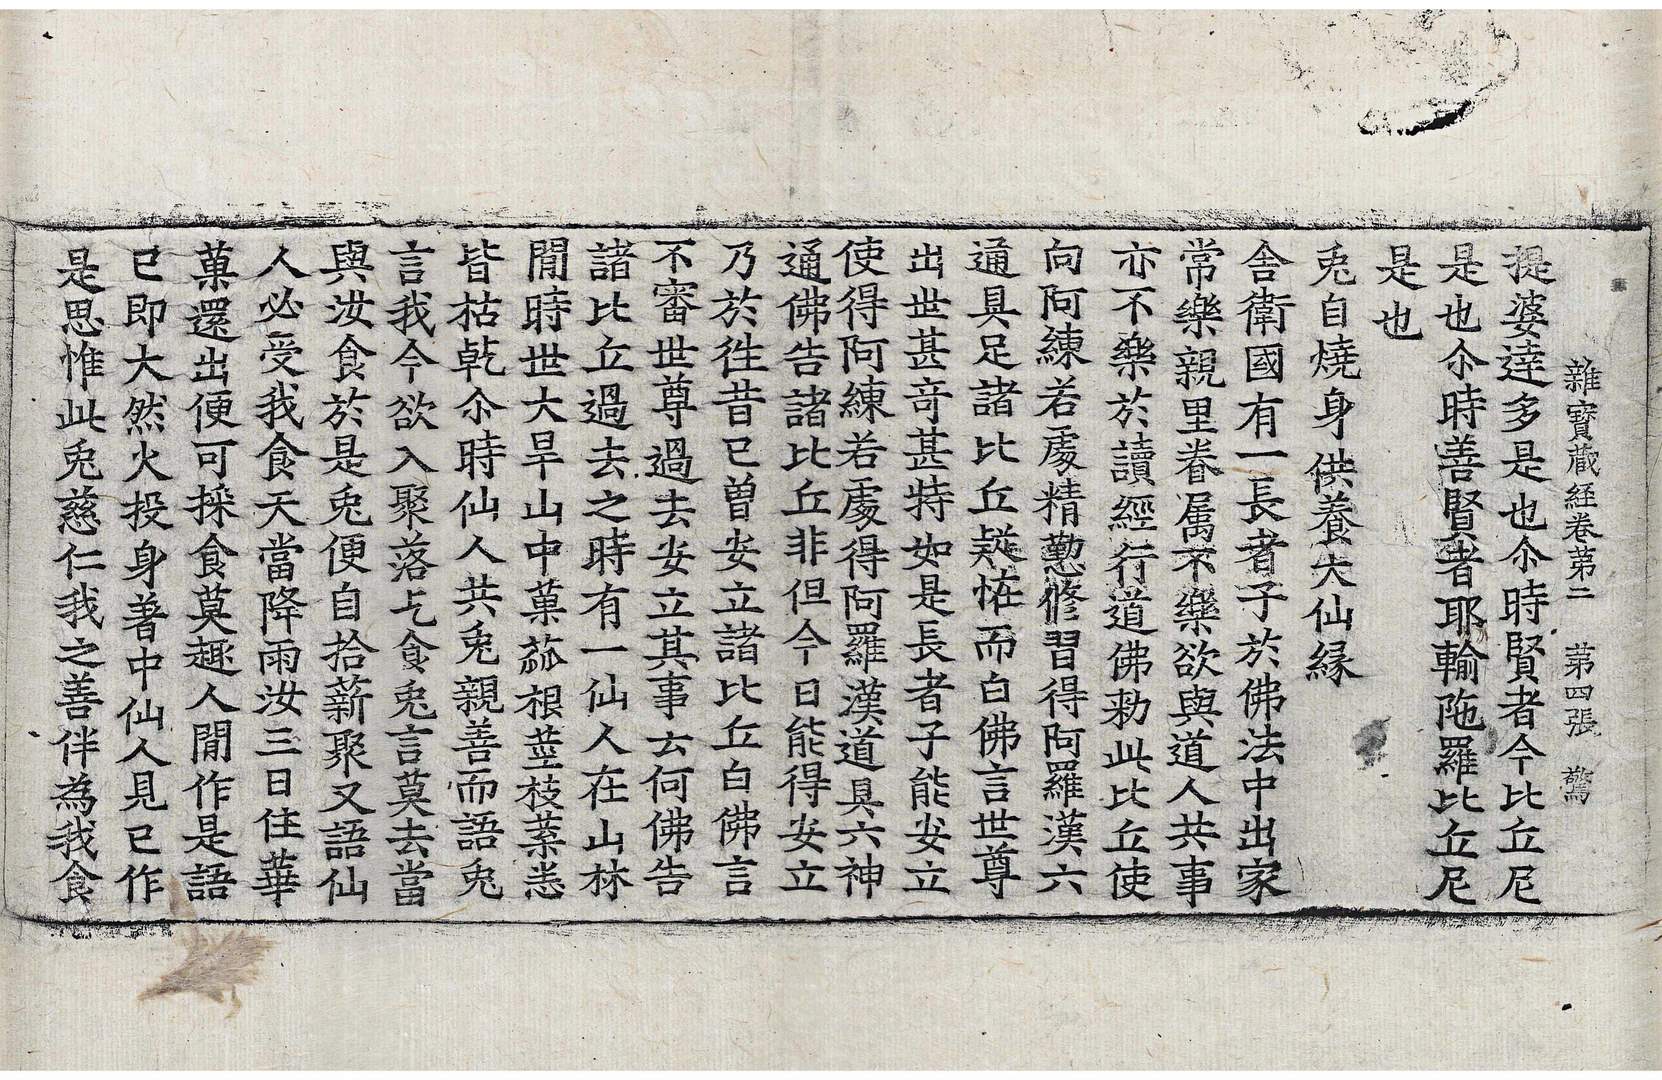 雜寶藏経卷第二 第四張 驚
提婆達多是也尒時賢者今比丘尼
是也尒時善賢者耶輸陁羅比丘尼
是也
兎自燒身供養大仙縁
舎衛國有一長者子於佛法中出家
常樂親里眷属不樂欲與道人共事
亦不樂於讀經行道佛勑此比丘使
向阿練若處精懃修習得阿羅漢六
通具足諸比丘疑恠而白佛言世尊
出世甚竒甚特如是長者子能安立
使得阿練若處得阿羅漢道具六神
通佛告諸比丘非但今日能得安立
乃於徃昔已曽安立諸比丘白佛言
不審世尊過去安立其事云何佛告
諸比丘過去之時有一仙人在山林
閒時世大旱山中菓蓏根莖枝葉悉
皆枯乾尒時仙人共兎親善而語兎
言我今欲入聚落乞食兎言莫去當
與汝食於是兎便自拾薪聚又語仙
人必受我食天當降雨汝三日住華
菓還出便可採食莫趣人閒作是語
已即大然火投身著中仙人見已作
是思惟此兎慈仁我之善伴為我食